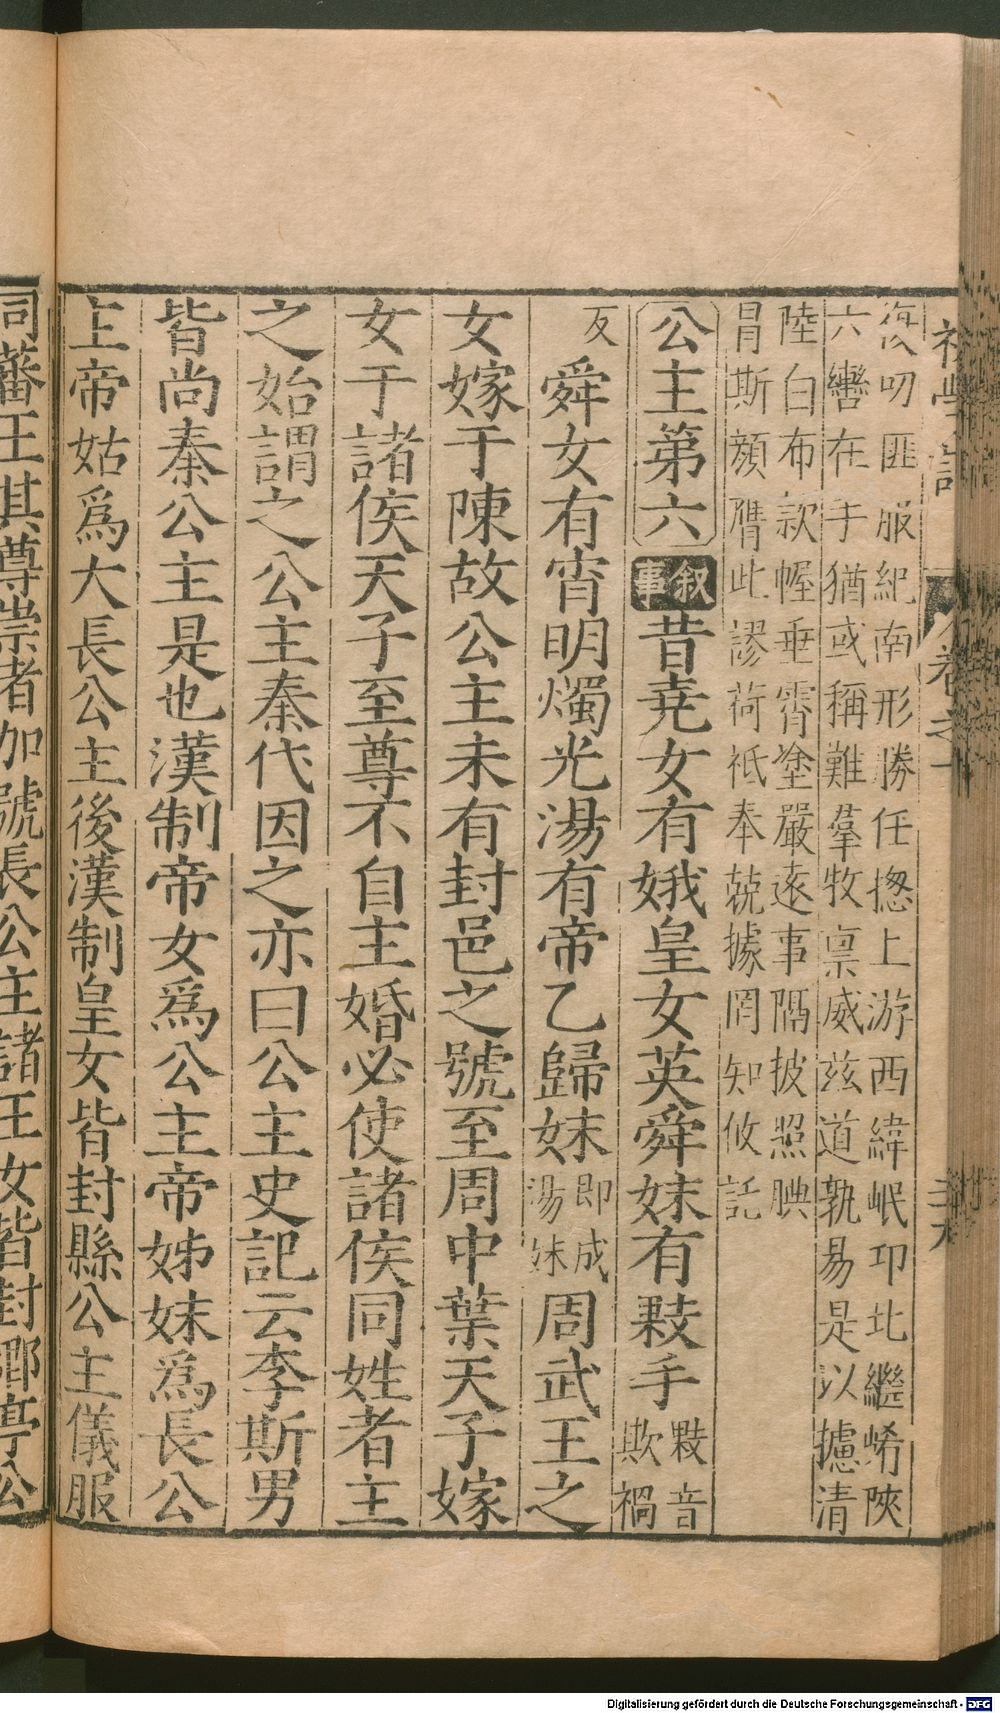 初學記 卷之十
復叨匪服紀南形勝任揔上游西緯岷印北繼崤陝
六轡在手猶或稱難羣牧禀威茲道孰易是以攄清
陸白布款幄垂霄塗嚴遠事隔披照腆
冒斯顏膺此謬荷祗奉兢據罔知攸託
公主第六 叙事 昔堯女有娥皇女英舜妹有敤手 敤音
欺禍
反 舜女有宵明燭光湯有帝乙歸妹 即成
湯妹 周武王之
女嫁于陳故公主未有封邑之號至周中葉天子嫁
女于諸侯天子至尊不自主婚必使諸侯同姓者主
之始謂之公主秦代因之亦曰公主史記云李斯男
皆尚秦公主是也漢制帝女爲公主帝姊妹爲長公
主帝姑爲大長公主後漢制皇女皆封縣公主儀服
同蕃王其尊崇者加號長公主諸王女皆封鄉亭公
Digitalisierung gefördert durch die Deutsche Forschungsgemeinschaft - DFG